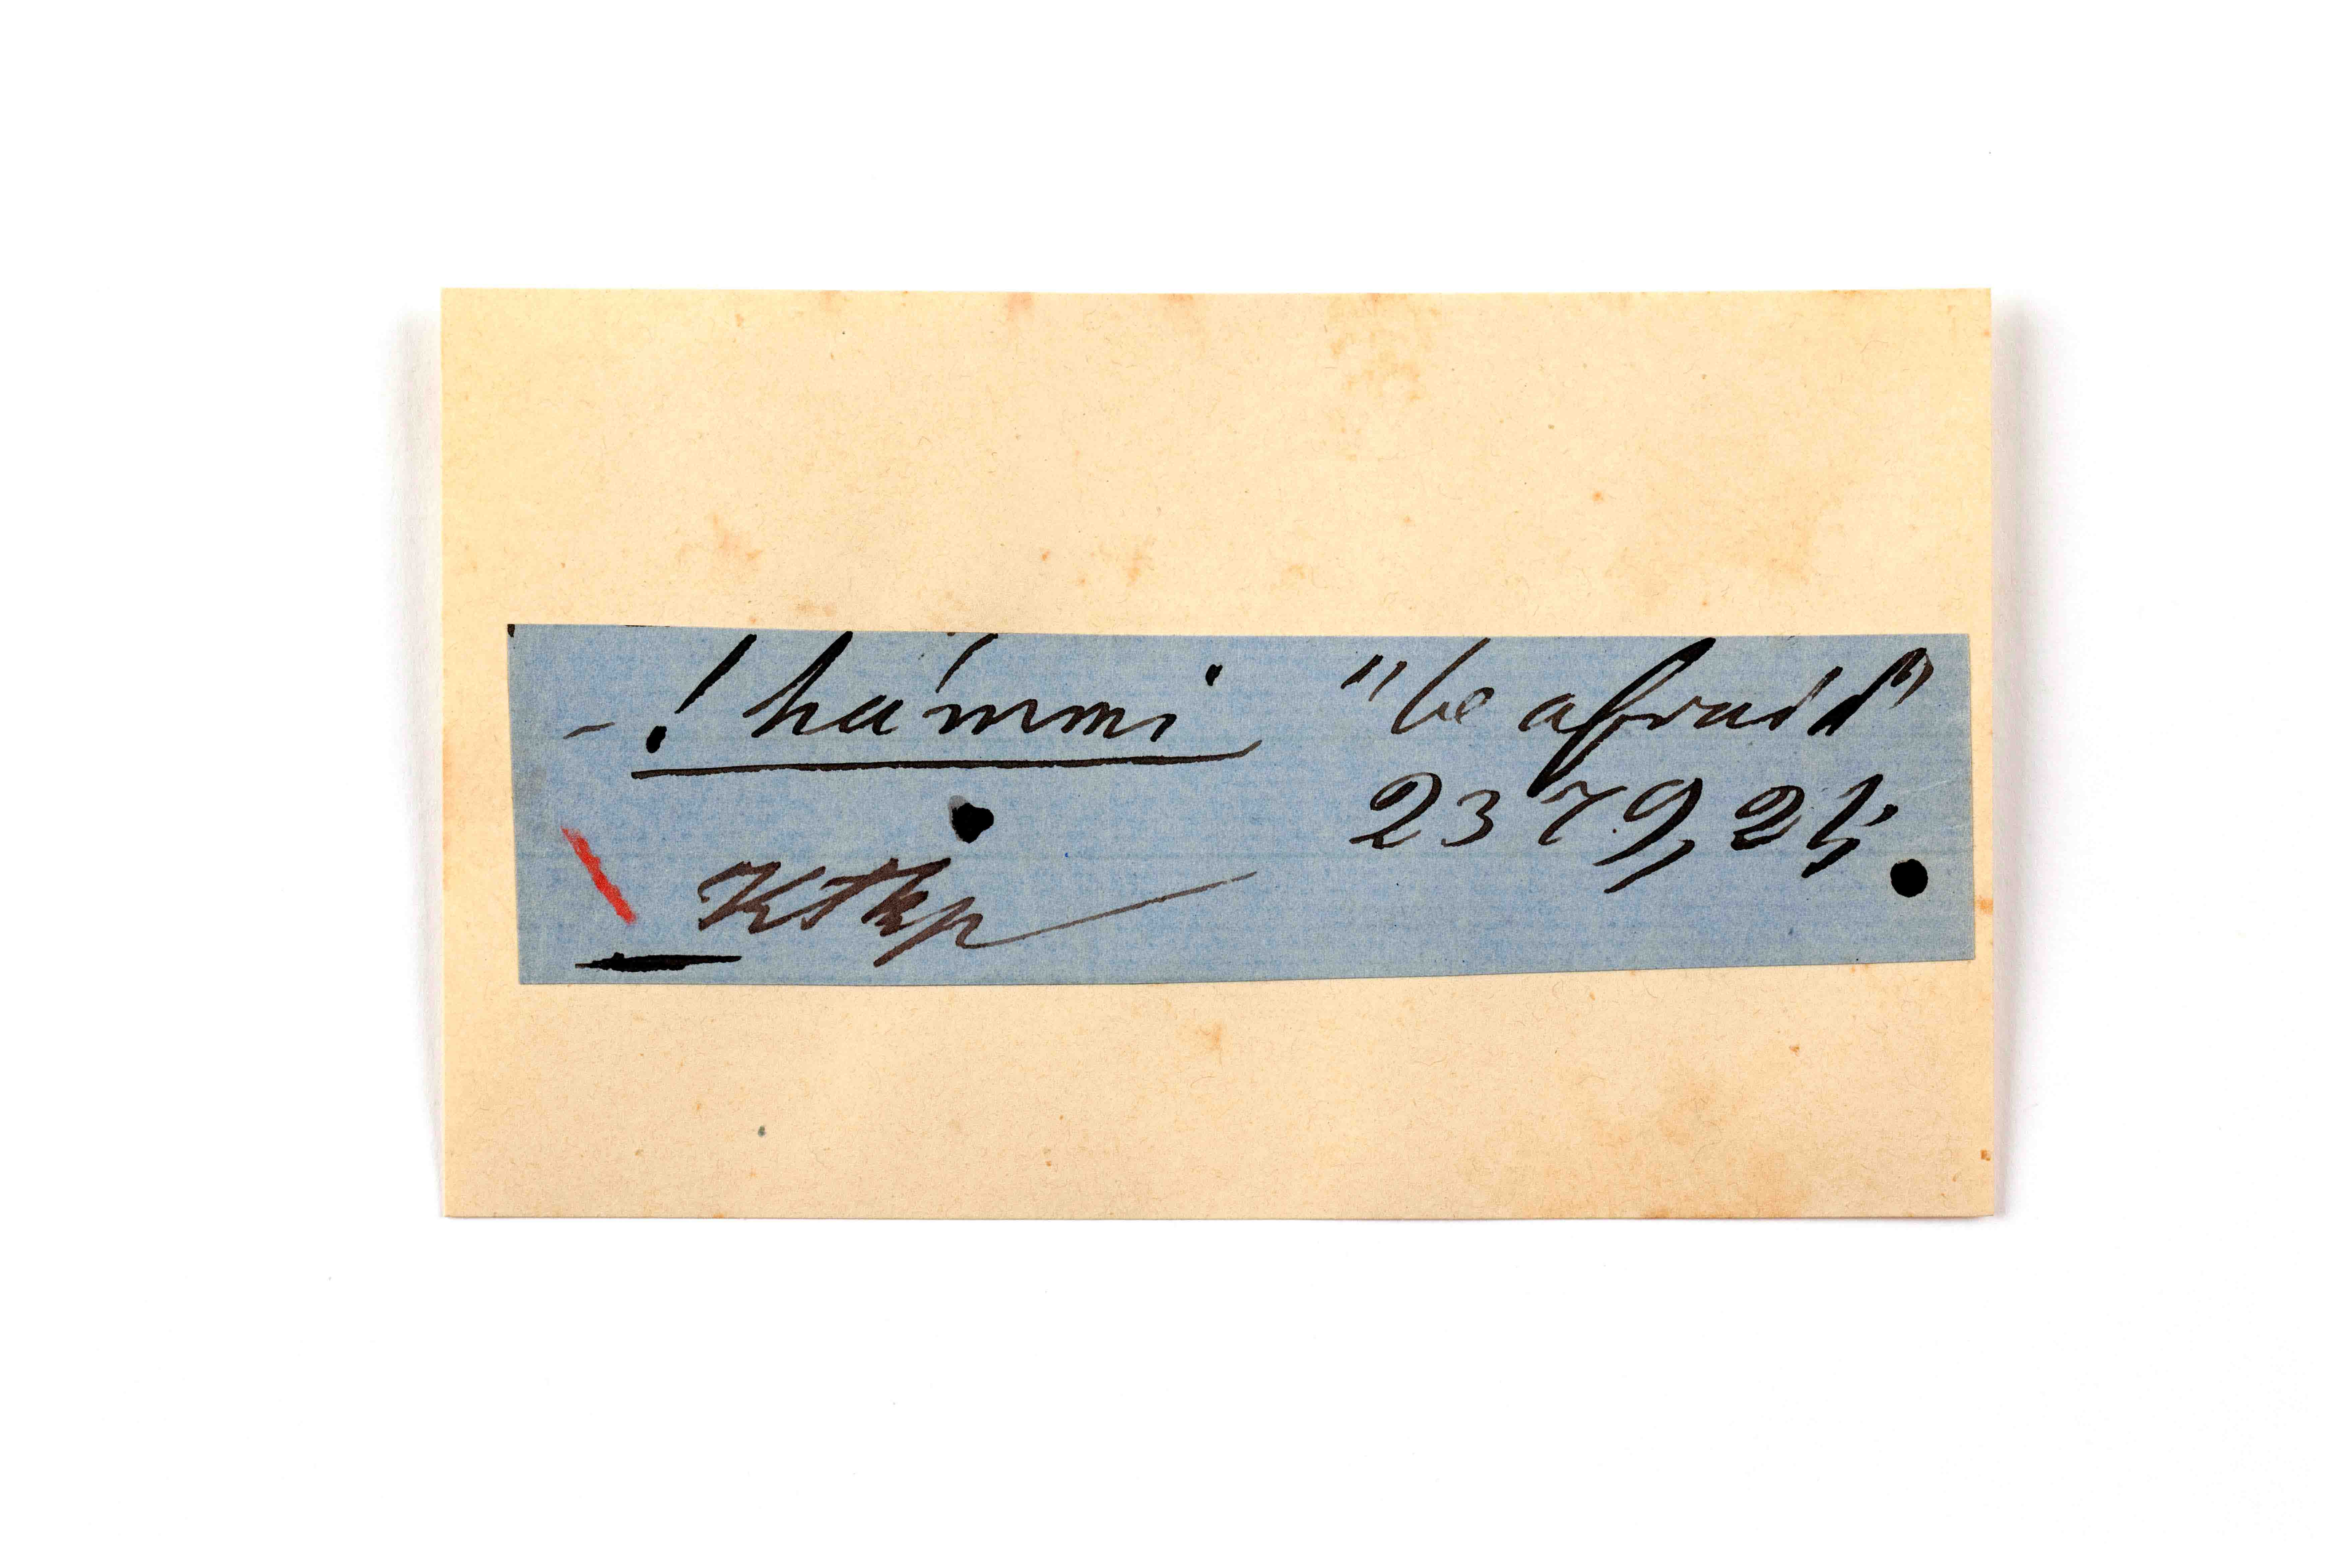 - ! hámmi "be afraid"
2379, 25.
Ktkp